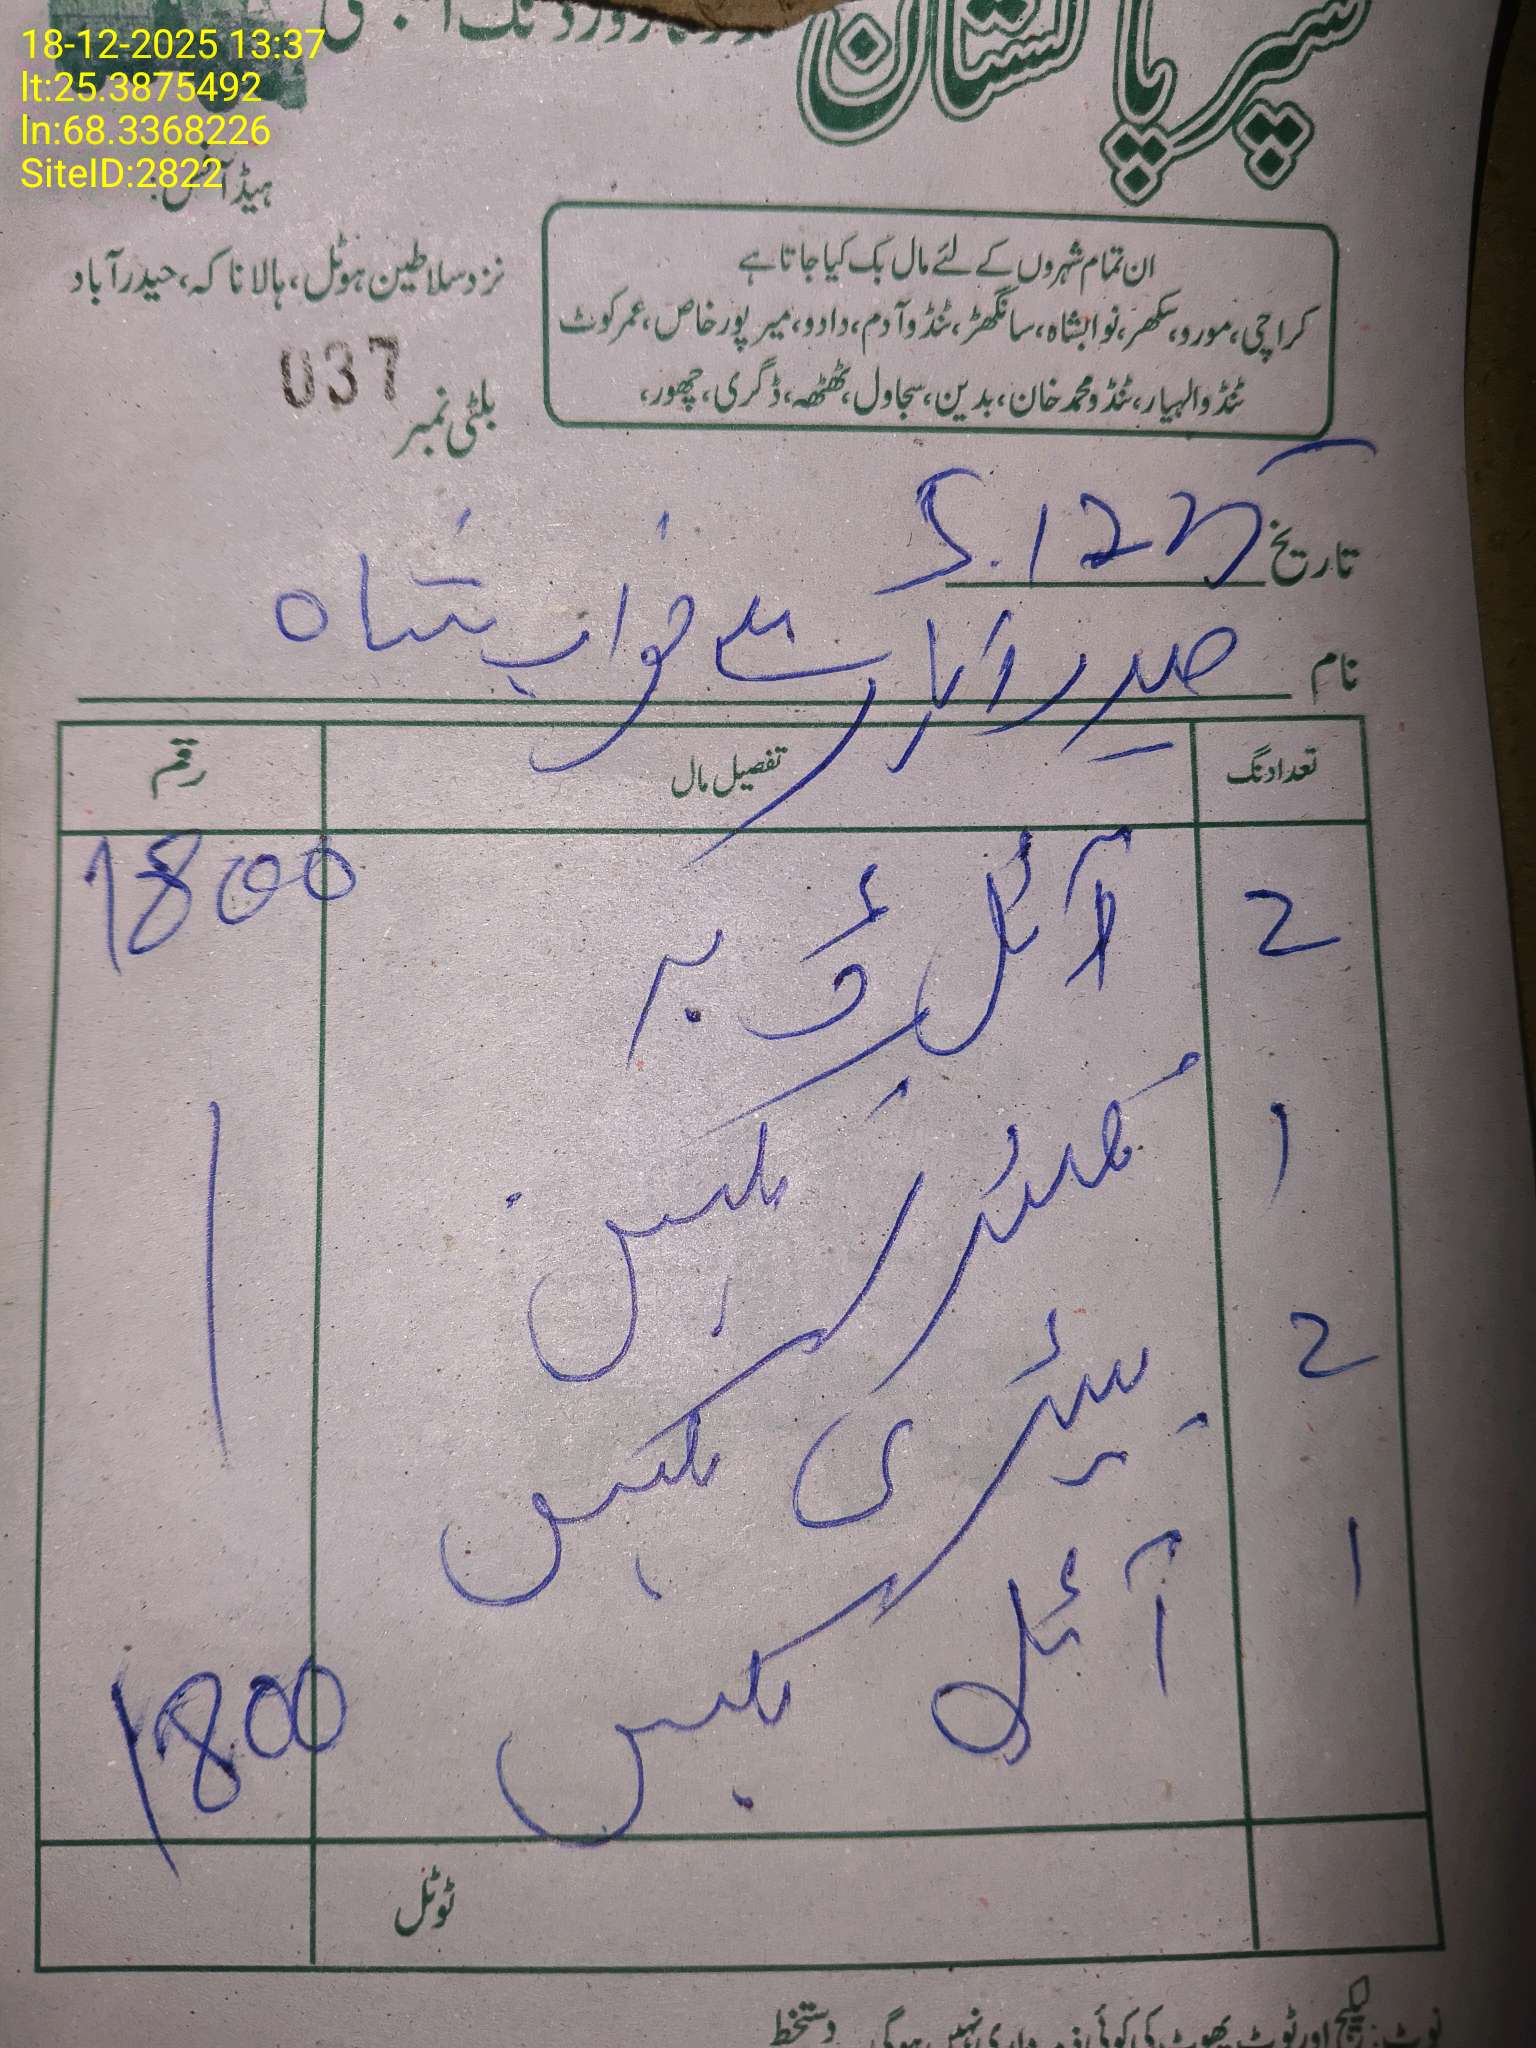 18-12-2025 13:37
lt:25.3875492
ln:68.3368226
SiteID:2822
سپر پاکستان
ہیڈ آفس:
نزد سلاطین ہوٹل، ہالا ناکہ، حیدرآباد
ان تمام شہروں کے لئے مال بک کیا جاتا ہے
کراچی، مورو، سکھر، نوابشاہ، سانگھڑ، ٹنڈو آدم، دادو، میر پور خاص، عمر کوٹ
ٹنڈو الہیار، ٹنڈو محمد خان، بدین، سجاول، ٹھٹھہ، ڈگری، چھور،
بلٹی نمبر 037
تاریخ 5.12 25
نام حیدرآباد سے نواب شاہ
تعداد نگ تفصیل مال رقم
2 آئل 1800
1 بکس
2 بیٹری بکس
1 آئل بکس
1800
ٹوٹل
نوٹ: لیکیج اور ٹوٹ پھوٹ کی کوئی ذمہ داری نہیں ہوگی۔ دستخط